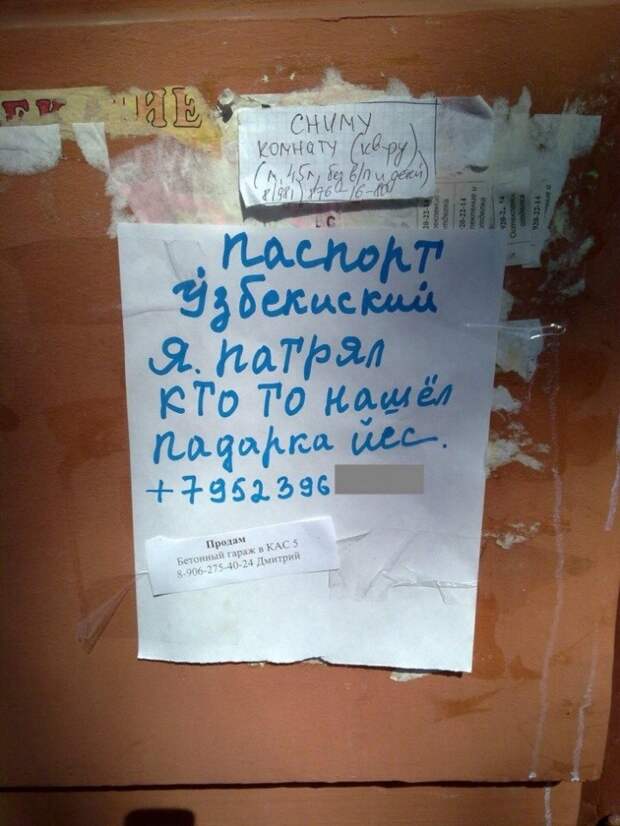 ЕК ИЕ
СНИМУ
КОМНАТУ (кв-ру)
без в/п и
паспорт
Ўзбекиский
Я. патрял
кто то нашёл
падарка йес.
+7952396
Продам
Бетонный гараж в КАС 5
8-906-275-40-24 Дмитрий